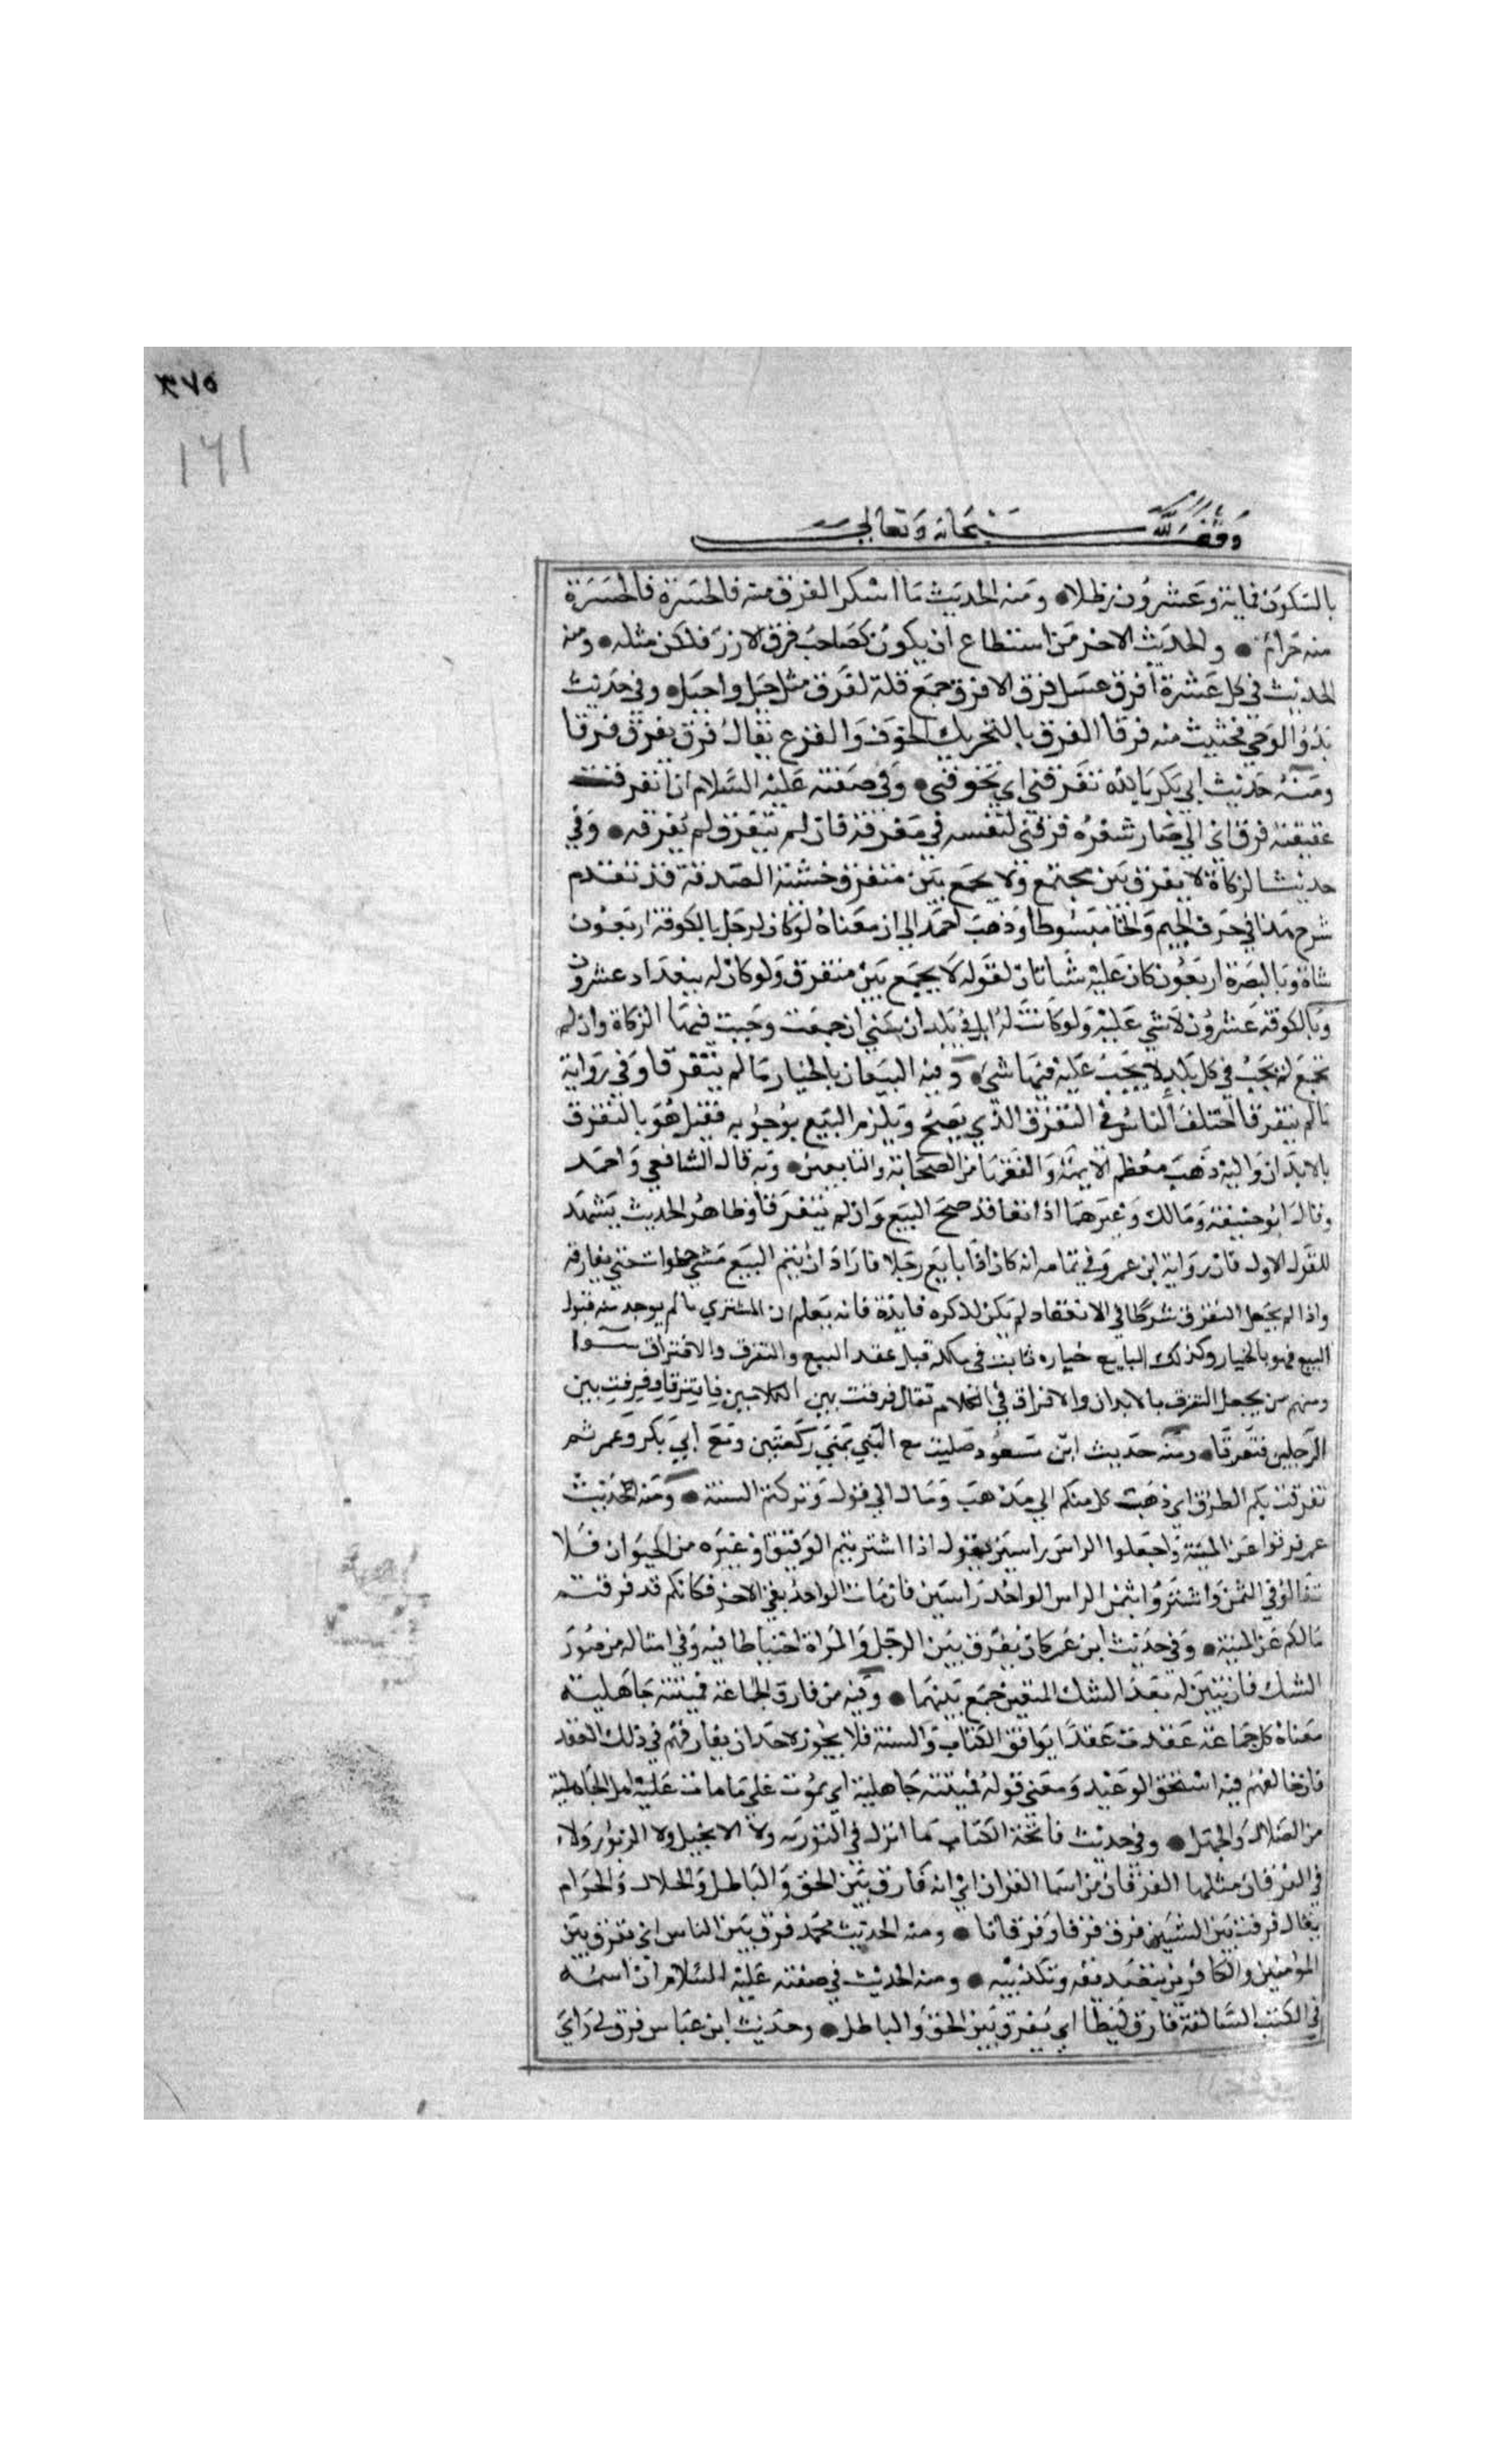 ٣٧٥
١٦١
وقف لله سبحانه وتعالى
بالسكون فماية وعشرون رطلا ومنه الحديث ما اسكر الفرق منه فالحسرة فالحسرة
منه حرام والحديث الاخر من استطاع ان يكون كصاحب فرق الارز فلكن مثله ومنه
الحديث في كل عشرة افرق عسل فرق الافرق جمع قلة لفرق مثل جبل واجبل وفي حديث
بدؤ الوحي فجثيث منه فرقا الفرق بالتحريك الخوف والفزع يقال فرق يفرق فرقا
ومنه حديث ابي بكر بالله تفرقني اي تخوفني وفي صفته عليه السلام ان انفرقت
عقيقته فرق اي الي صار شعره فرقني لنفسه في مفرقه فان لم ينفرق لم يفرقه وفي
حديث الزكاة لا يفرق بين مجتمع ولا يجمع بين متفرق خشية الصدقة قد تقدم
شرح هذا في حرف الجيم والخا مبسوطا وذهب احمد الي ان معناه لو كان لرجل بالكوفة اربعون
شاة وبالبصرة اربعون كان عليه شاتان لقوله لا يجمع بين متفرق ولو كان له ببغداد عشرون
وبالكوفة عشرون لا شي عليه ولو كانت له ابل في بلدان شتي ان جمعت وجبت فيها الزكاة وان لم
تجمع لم يجب في كل بلد لا يجب عليه فيها شي وفيه البيعان بالخيار ما لم يتفرقا وفي رواية
ما لم يتفرقا اختلف الناس في التفرق الذي يصح ويلزم البيع بوجوبه فقيل هو بالتفرق
بالابدان واليه ذهب معظم الايمة والفقها من الصحابة والتابعين وبه قال الشافعي واحمد
وقال ابو حنيفة ومالك وغيرهما اذا تعاقد صح البيع وان لم يتفرقا وظاهر الحديث يشهد
للقول الاول فان رواية ابن عمر وفي تمامه انه كان اذا بايع رجلا فاراد ان يتم البيع مشي خطوات حتي يفارقه
واذا لم يجعل التفرق شرطا في الانعقاد لم يكن لذكره فايدة فانه يعلم ان المشتري ما لم يوجد منه قبول
البيع فهو بالخيار وكذلك البايع خياره ثابت في ملكه قبل عقد البيع والتفرق والافتراق سوا
ومنهم من يجعل التفرق بالابدان والافراق في الكلام تقال فرقت بين الكلامين فافترقا وفرقت بين
الرجلين فتفرقا ومنه حديث ابن مسعود صليت مع النبي بمني ركعتين ومع ابي بكر وعمر ثم
تفرقت بكم الطرق اي ذهبت كل منكم الي مذهب ومال الي قول وتركتم السنة ومنه حديث
عمر فرقوا عن المنية واجعلوا الراس راسين يقول اذا اشتريتم الرقيق او غيره من الحيوان فلا
تغالو في الثمن واشتروا بثمن الراس الواحد راسين فان مات الواحد بقي الاخر فكانكم قد فرقتم
مالكم عن المنية وفي حديث ابن عمر كان يفرق بين الرجل والمراة احتياطا فيه وفي امثاله من صور
الشك فان تبين له بعد الشك اليقين جمع بينهما وفيه من فارق الجماعة فميتته جاهلية
معناه كل جماعة عقدت عقدا يوافق الكتاب والسنة فلا يجوز لاحد ان يفارقهم في ذلك العقد
فان خالفهم فيه استحق الوعيد ومعني قوله فميتته جاهلية اي يموت علي ما مات عليه اهل الجاهلية
من الضلال والجهل وفي حديث فاتحة الكتاب ما انزل في التوريه ولا الانجيل ولا الزبور ولا
في الفرقان مثلها الفرقان من اسما القران اي انه فارق بين الحق والباطل والحلال والحرام
يقال فرقت بين الشيين فرق فرقا وفرقانا ومنه الحديث محمد فرق بين الناس اي تفرق بين
المؤمنين والكافرين بتصديقه وتكذيبه ومنه الحديث في صفته عليه السلام ان اسمه
في الكتب السالفة فارق ليطا اي يفرق بين الحق والباطل وحديث ابن عباس فرق لي راي